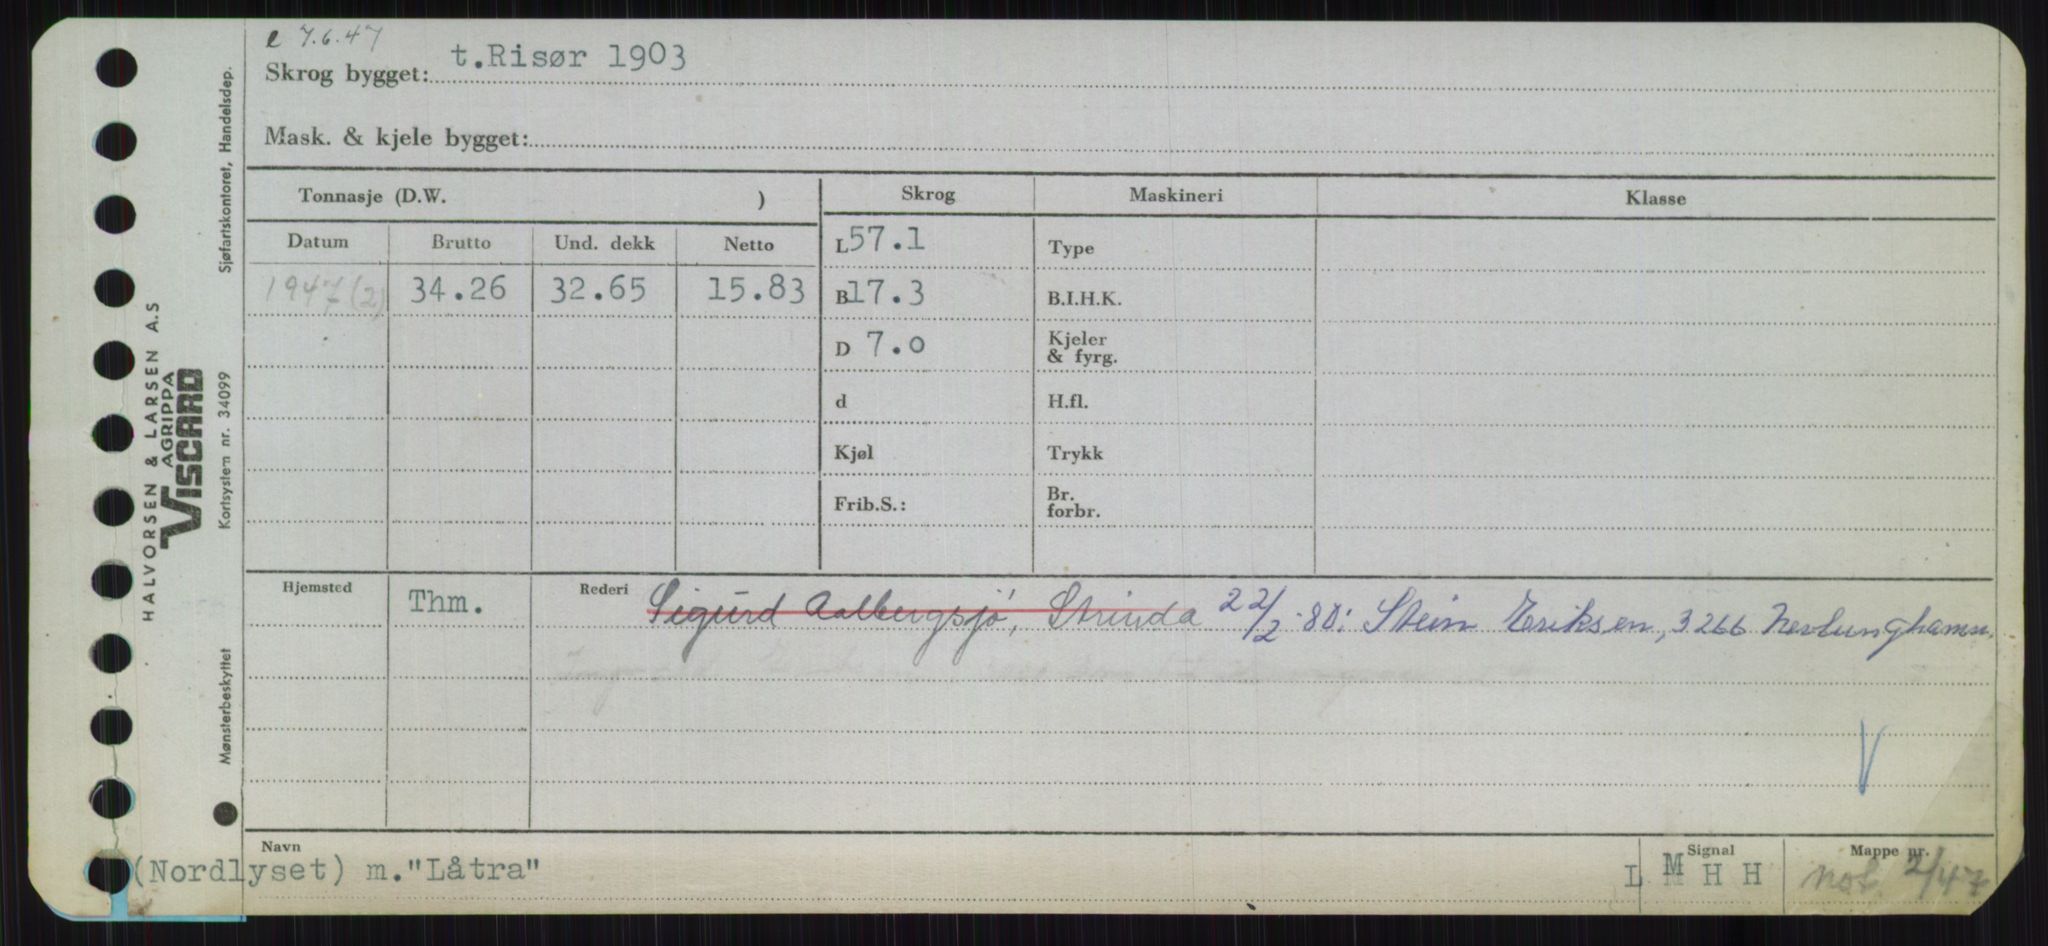 e 7.6.47
Skrog bygget: t.Risør 1903
Mask. & kjele bygget:
Tonnasje (D.W. )
Skrog Maskineri Klasse
Datum Brutto Und. dekk Netto
L 57.1 Type
1947 (2) 34.26 32.65 15.83
B 17.3 B.I.H.K.
D 7.0 Kjeler & fyrg.
d H.fl.
Kjøl Trykk
Frib.S.: Br. forbr.
Hjemsted Thm. Rederi Sigurd Aalbergsjö, Strinda 22/2-80: Stein Eriksen, 3266 Nevlunghamn.
V
Navn Signal Mappe nr.
(Nordlyset) m."Låtra" L M H H Not. 2/47
HALVORSEN & LARSEN A.S
AGRIPPA
VISCARD
Mønsterbeskyttet Kortsystem nr. 34099 Sjøfartskontoret, Handelsdep.